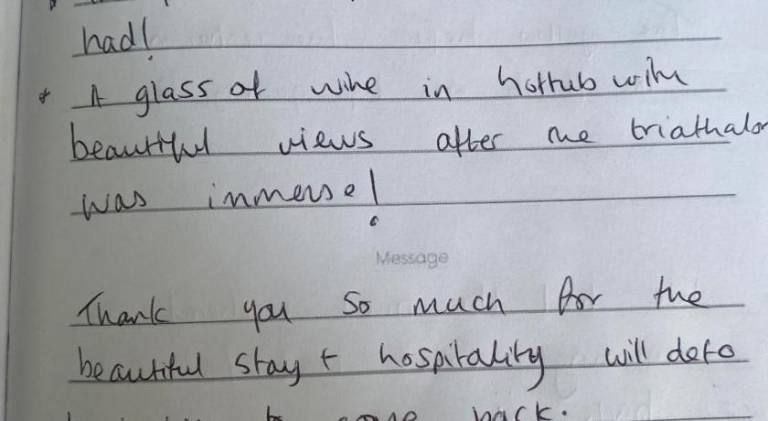 had!
* A glass of wine in hottub with
beautiful views after the triathalon
was inmense!
Message
Thank you so much for the
beautiful stay + hospitality will defo
back.